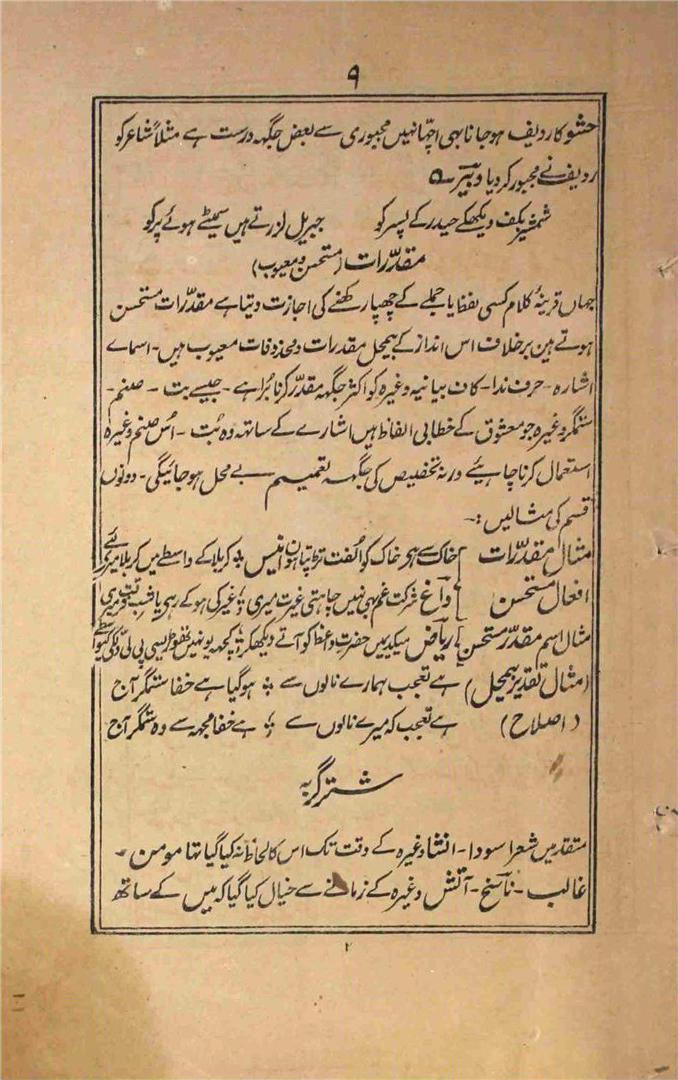 ۹
حشو کا ردیف ہو جانا بھی اچھا نہیں مجبوری سے بعض جگہہ درست ہے مثلاً شاعر کو
ردیف نے مجبور کر دیا دبیر ؎
شمشیر بکف دیکھکے حیدر کے پسر کو جبریل لرزتے ہیں سمیٹے ہوئے پر کو
مقدّرات (مستحسن و معیوب)
جہاں قرینۂ کلام کسی لفظ یا جملے کے چھپا رکھنے کی اجازت دیتا ہے مقدّرات مستحسن
ہوتے ہین برخلاف اس انداز کے بیمحل مقدرات و محذوفات معیوب ہیں۔ اسماے
اشارہ ۔ حرف ندا ۔ کاف بیانیہ وغیرہ کو اکثر جگہہ مقدّر کرنا بُرا ہے ۔ جیسے بت ۔ صنم ۔
ستمگر وغیرہ جو معشوق کے خطابی الفاظ ہیں اشارے کے ساتھ وہ بُت ۔ اُس صنم وغیرہ
استعمال کرنا چاہیئے ورنہ تخصیص کی جگہہ تعمیم بے محل ہو جائیگی ۔ دونوں
قسم کی مثالیں :۔
مثال مقدّرات خاک سے ہی خاک کو الفت تڑپتا ہون انیس ؞ کربلا کے واسطے میں کربلا میرے لئے
افعال مستحسن داغ شرکت غم بھی نہیں چاہتی غیرت میری ؞ غیر کی ہو کے رہی یا شب فرقت میری
مثال اسم مقدّر مستحسن ریاض میکدیمیں حضرت واعظ کو آتے دیکھکر ؞ کچھہ یونہیں تھوڑیسی پی لی دل لگی کیواسطے
(مثال تقدیر بیمحل) ہے تعجب ہمارے نالوں سے ؞ ہو گیا ہے خفا ستمگر آج
(اصلاح) ہے تعجب کہ میرے نالوں سے ؞ ہے خفا مجھہ سے وہ ستمگر آج
شتر گربہ
متقدمیں شعرا سودا ۔ انشا وغیرہ کے وقت تک اس کا لحاظ نہ کیا گیا تھا مومن ۔
غالب ۔ ناسخ ۔ آتش وغیرہ کے زمانے سے خیال کیا گیا کہ میں کے ساتھ
۲